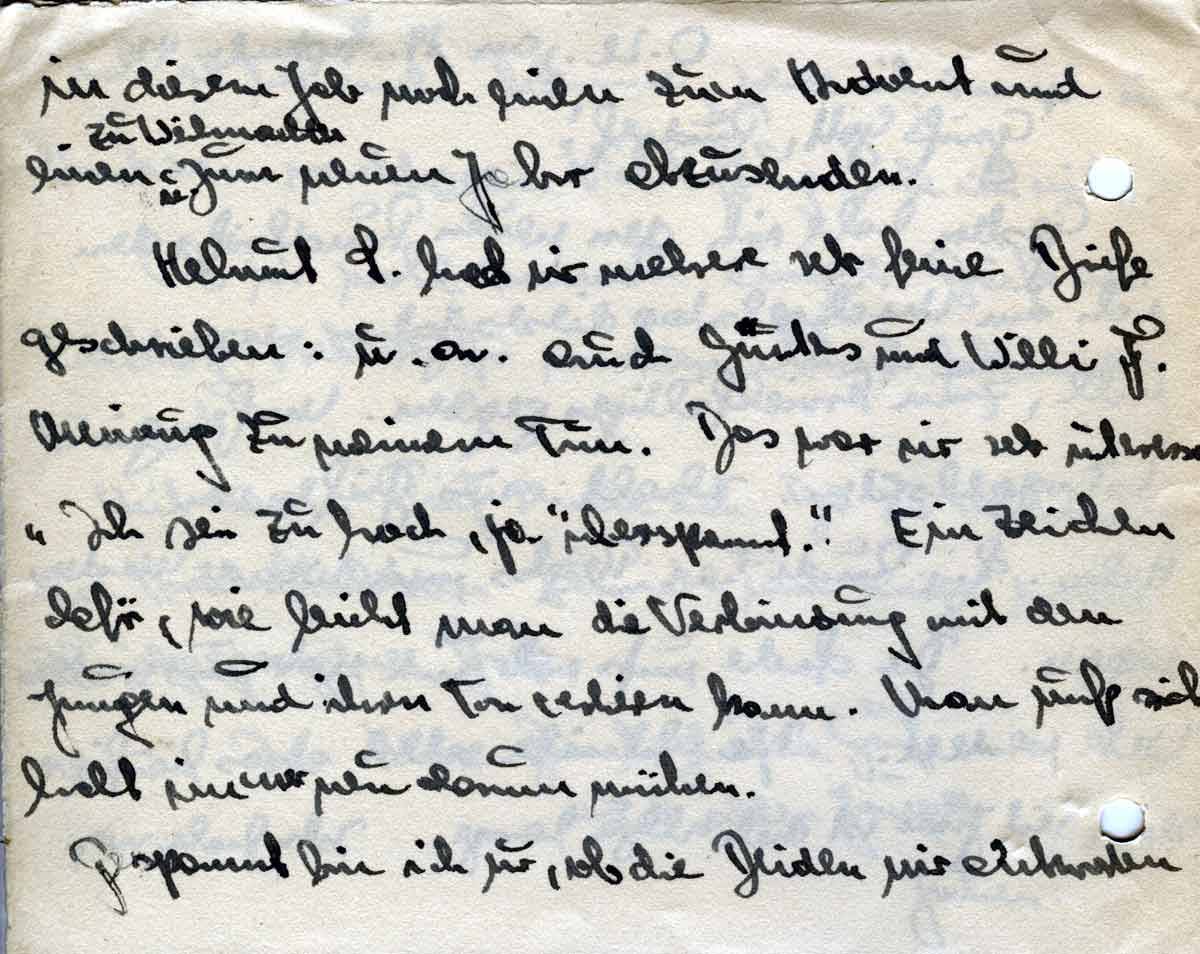 in diesem Jahr noch einen zum Advent und
zu Weihnachten
einen u. zum neuen Jahr abzusenden.
Helmut hat mir mehrere sehr feine Briefe
geschrieben: u. a. auch und Willi F.
Meinung zu meinem Tun. Das war mir sehr interess
„Ich sei zu hoch, ja "überspannt." Ein Zeichen
dafür, wie leicht man die Verbindung mit den
Jungen und ihren Ton verlieren kann. Man muß sich
halt immer neu darum mühen.
Gespannt bin ich nur, ob die Beiden mir antworten